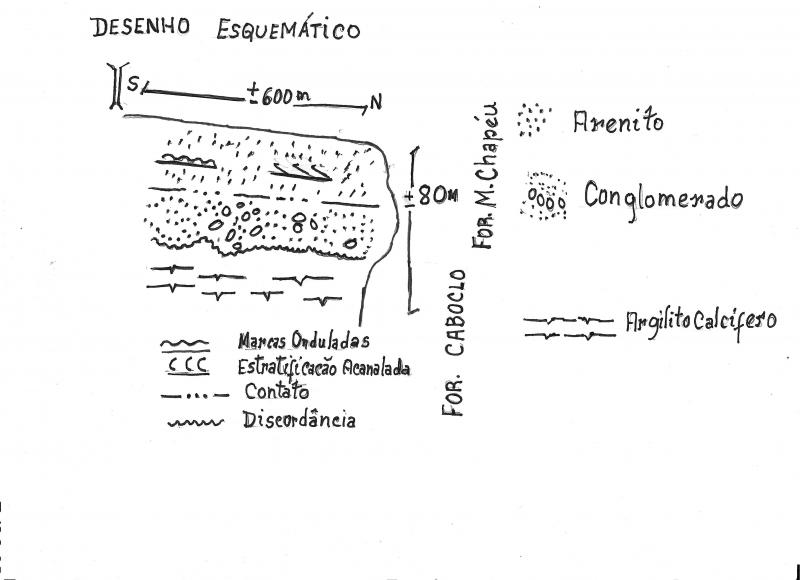 DESENHO ESQUEMÁTICO
S ± 600 m N
± 80M
FOR. M. Chapéu
FOR. CABOCLO
Arenito
Conglomerado
Argilito Calcífero
Marcas Onduladas
CCC Estratificação Acanalada
Contato
Discordância